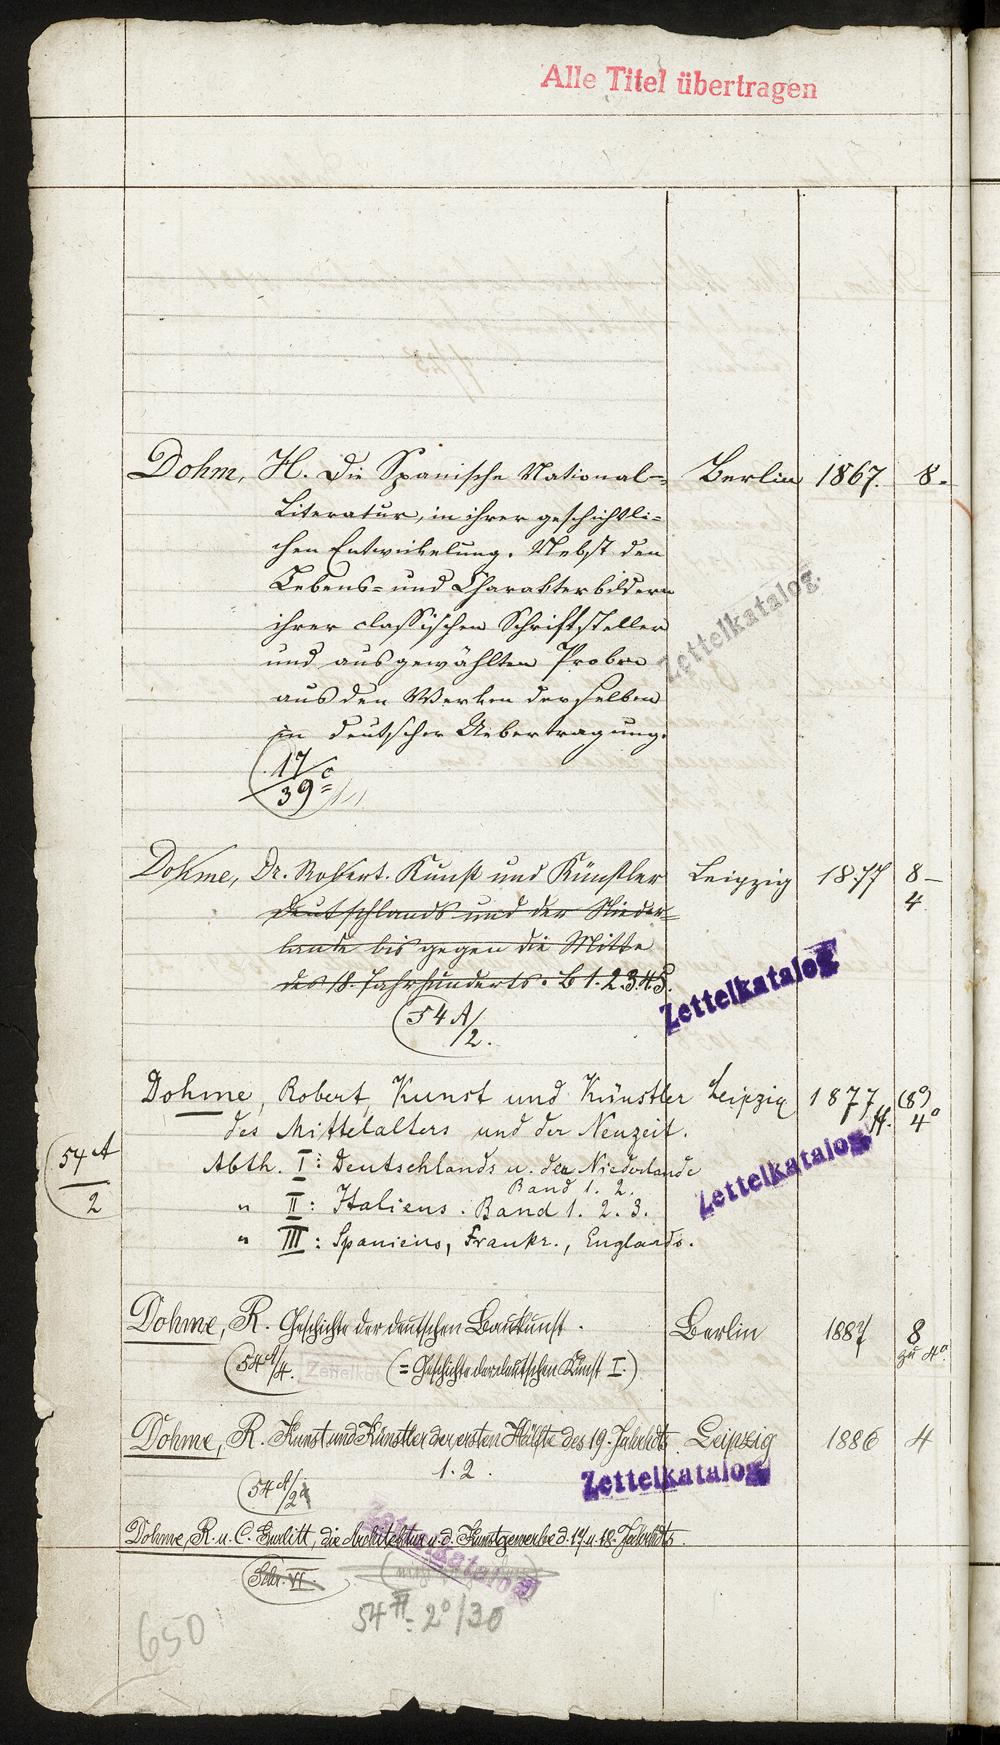 Alle Titel übertragen
Dohm, H. Die Spanische National= Berlin 1867. 8.
Literatur, in ihrer geschichtli=
chen Entwickelung. Nebst den
Lebens= und Charakterbildern
ihrer classischen Schriftsteller
und ausgewählten Proben
aus den Werken derselben
in deutscher Uebertragung.
Zettelkatalog.
17/39 c
Dohme, Dr. Robert. Kunst und Künstler Leipzig 1877 8–4
Deutschlands und der Nieder=
lande bis gegen die Mitte
des 18. Jahrhunderts. B 1. 2. 3. 4. 5.
Zettelkatalog
54 A/2.
Dohme, Robert, Kunst und Künstler Leipzig 1877 ff. (8°) 4°
des Mittelalters und der Neuzeit.
54 A/2
Abth. I: Deutschlands u. der Niederlande
Band 1. 2.
" II: Italiens. Band 1. 2. 3.
" III: Spaniens, Frankr., Englands.
Zettelkatalog
Dohme, R. Geschichte der deutschen Baukunst. Berlin 1887 8 zu 4°.
54 A/4. Zettelkatalog (= Geschichte der deutschen Kunst I.)
Dohme, R. Kunst und Künstler der ersten Hälfte des 19. Jahrhdts. Leipzig 1886 4
1. 2.
Zettelkatalog
54 A/2
Dohme, R. u. C. Gurlitt, die Architektur u. d. Kunstgewerbe d. 17 u. 18. Jahrhdts.
Zettelkatalog
Schr. VI.
54 2°/30
650